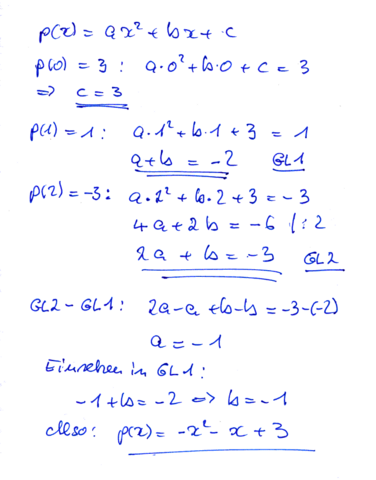 p(x) = ax² + bx + c
p(0) = 3 : a·0² + b·0 + c = 3
=> c = 3
p(1) = 1 : a·1² + b·1 + 3 = 1
a + b = -2 GL1
p(2) = -3 : a·2² + b·2 + 3 = -3
4a + 2b = -6 /:2
2a + b = -3 GL2
GL2 - GL1 : 2a - a + b - b = -3 - (-2)
a = -1
Einsehen in GL1 :
-1 + b = -2 <=> b = -1
Also : p(x) = -x² - x + 3